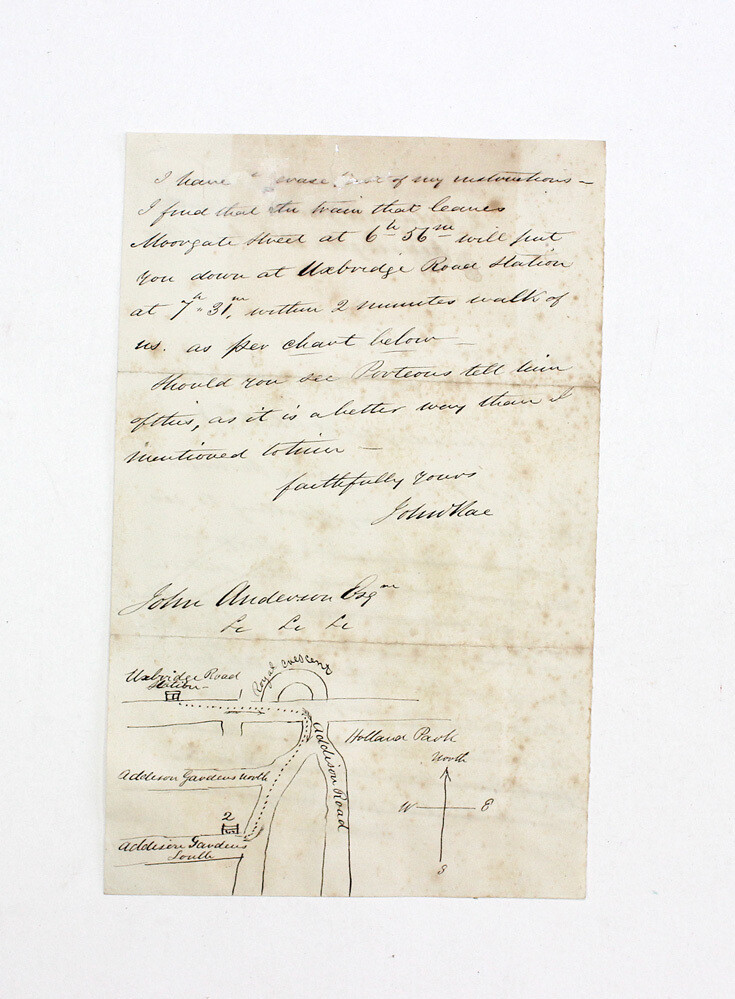 I have of my instructions –
I find that the train that leaves
Moorgate Street at 6h 56m will put
you down at Uxbridge Road Station
at 7h 31m, within 2 minutes walk of
us. as per chart below –
Should you see Porteous tell him
of this, as it is a better way than I
mentioned to him –
faithfully yours
John Rae
John Anderson Esqre
&c &c &c
Uxbridge Road
Station –
Royal Crescent
Addison Road
Holland Park
North
W E
S
Addison Gardens North
2
Addison Gardens
South